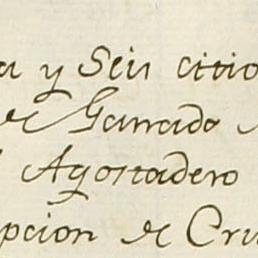 a y Seis citio
de Ganado
Agostadero
pcion de Cru